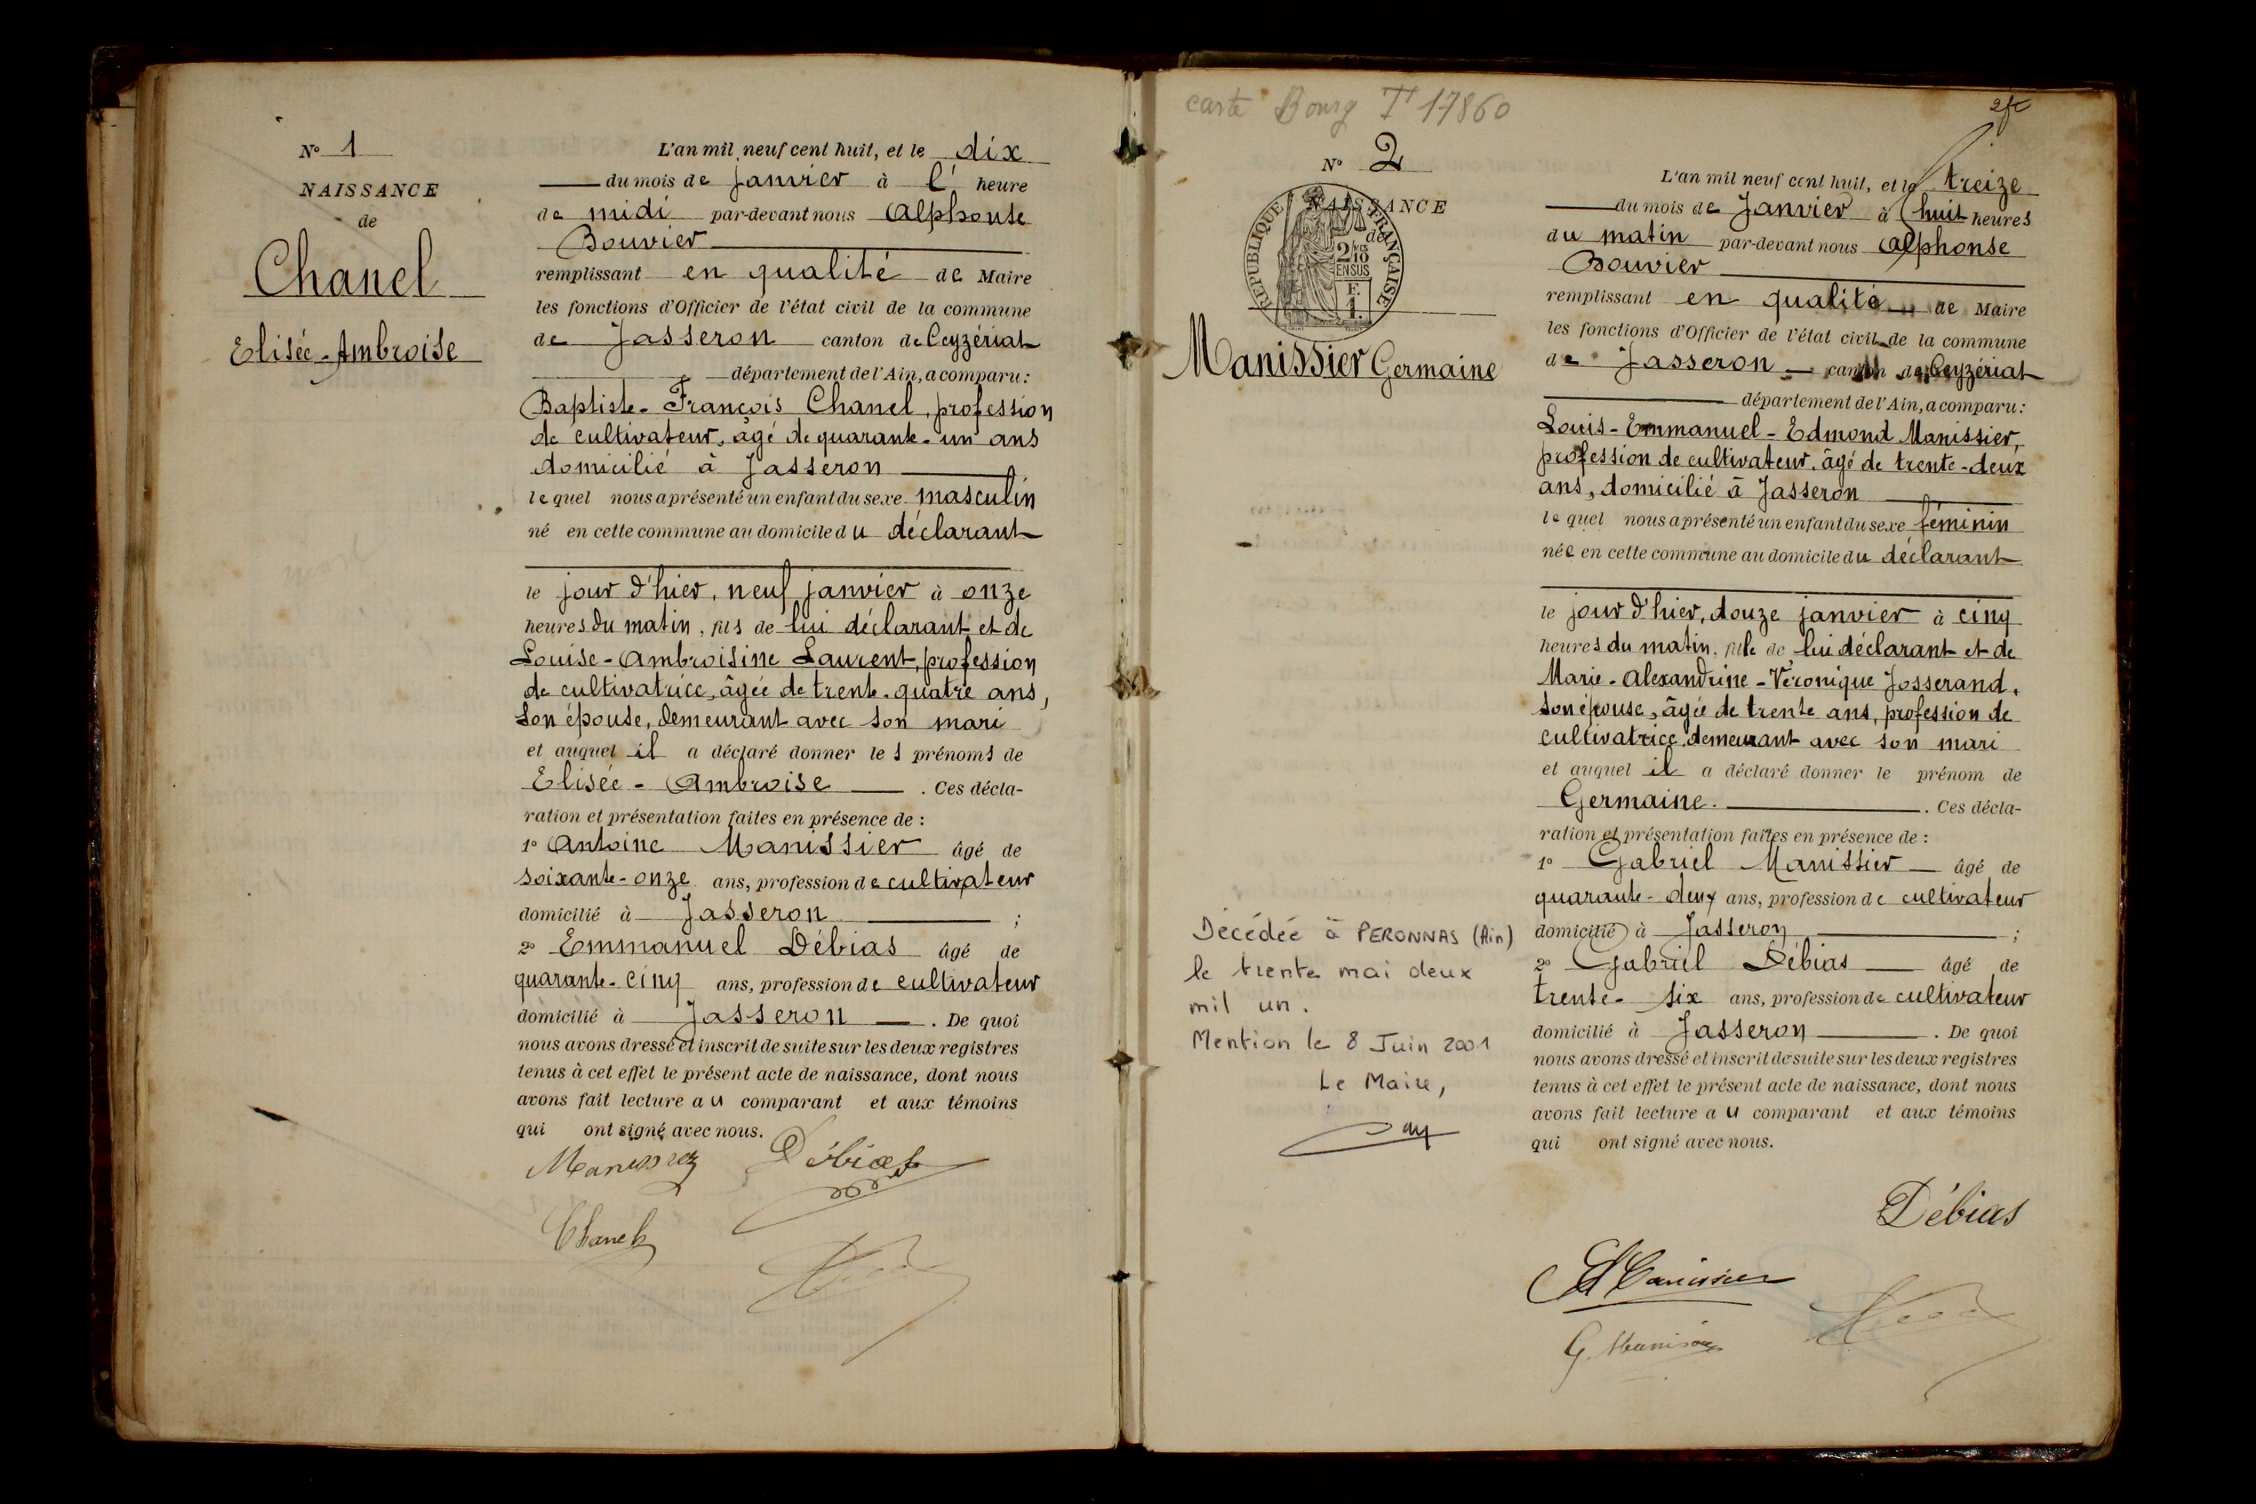 N° 1
NAISSANCE
de
Chanel
Elisée-Ambroise
L'an mil neuf cent huit, et le dix
du mois de janvier à l' heure
de midi par-devant nous Alphonse
Bouvier
remplissant en qualité de Maire
les fonctions d'Officier de l'état civil de la commune
de Jasseron canton de Ceyzériat
département de l'Ain, a comparu :
Baptiste-François Chanel, profession
de cultivateur, âgé de quarante-un ans
domicilié à Jasseron
lequel nous a présenté un enfant du sexe masculin
né en cette commune au domicile du déclarant
le jour d'hier, neuf janvier à onze
heures du matin, fils de lui déclarant et de
Louise-Ambroisine Laurent, profession
de cultivatrice, âgée de trente-quatre ans,
son épouse, demeurant avec son mari
et auquel il a déclaré donner les prénoms de
Elisée-Ambroise . Ces décla-
ration et présentation faites en présence de :
1° Antoine Manissier âgé de
soixante-onze ans, profession de cultivateur
domicilié à Jasseron ;
2° Emmanuel Débias âgé de
quarante-cinq ans, profession de cultivateur
domicilié à Jasseron . De quoi
nous avons dressé et inscrit de suite sur les deux registres
tenus à cet effet le présent acte de naissance, dont nous
avons fait lecture au comparant et aux témoins
qui ont signé avec nous.
Manissier Débias
Chanel
carte Bourg T 17860
N° 2
NAISSANCE
de
RÉPUBLIQUE FRANÇAISE
2/10 EN SUS
F.
1.
Manissier Germaine
Décédée à PERONNAS (Ain)
le trente mai deux
mil un.
Mention le 8 Juin 2001
Le Maire,
L'an mil neuf cent huit, et le treize
du mois de Janvier à huit heures
du matin par-devant nous Alphonse
Bouvier
remplissant en qualité de Maire
les fonctions d'Officier de l'état civil de la commune
de Jasseron canton de Ceyzériat
département de l'Ain, a comparu :
Louis-Emmanuel-Edmond Manissier,
profession de cultivateur, âgé de trente-deux
ans, domicilié à Jasseron
lequel nous a présenté un enfant du sexe féminin
née en cette commune au domicile du déclarant
le jour d'hier, douze janvier à cinq
heures du matin, fille de lui déclarant et de
Marie-Alexandrine-Véronique Josserand,
son épouse, âgée de trente ans, profession de
cultivatrice, demeurant avec son mari
et auquel il a déclaré donner le prénom de
Germaine. . Ces décla-
ration et présentation faites en présence de :
1° Gabriel Manissier âgé de
quarante-deux ans, profession de cultivateur
domicilié à Jasseron ;
2° Gabriel Débias âgé de
trente-six ans, profession de cultivateur
domicilié à Jasseron . De quoi
nous avons dressé et inscrit de suite sur les deux registres
tenus à cet effet le présent acte de naissance, dont nous
avons fait lecture au comparant et aux témoins
qui ont signé avec nous.
Débias
Manissier
G. Manissier